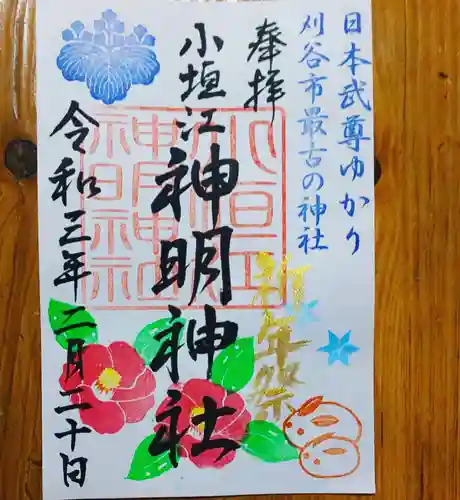 日本武尊ゆかり
刈谷市最古の神社
奉拝
小垣江神明神社
小垣江
神明神社
祈年祭
令和三年二月二十日